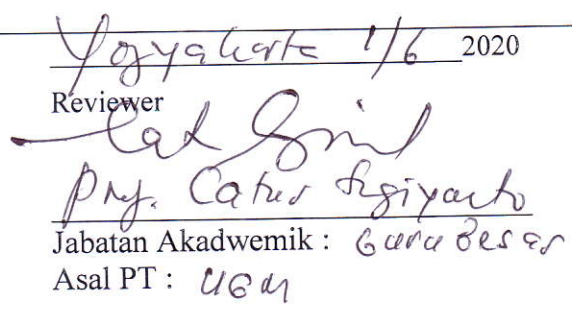 Yogyakarta 1/6 2020
Reviewer
Prof. Catur Sugiyanto
Jabatan Akadwemik : Guru Besar
Asal PT : UGM